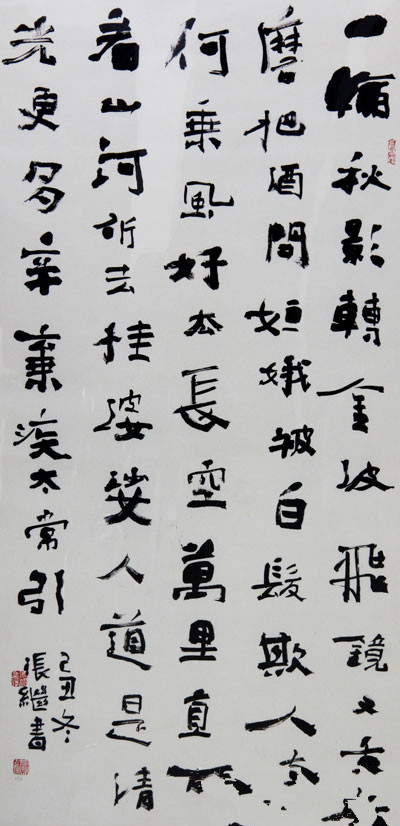 一輪秋影轉金波飛鏡又重
磨把酒問姮娥被白髮欺人奈
何乘風好去長空萬里直下
看山河斫去桂婆娑人道是清
光更多辛棄疾太常引
己丑冬
張繼書